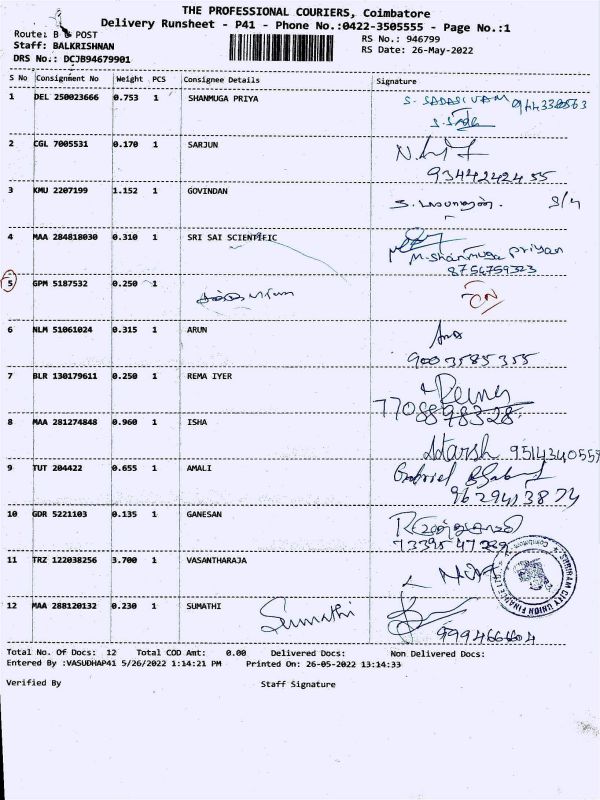 THE PROFESSIONAL COURIERS, Coimbatore
Delivery Runsheet - P41 - Phone No.:0422-3505555 - Page No.:1
Route: B B POST
RS No.: 946799
Staff: BALKRISHNAN
RS Date: 26-May-2022
DRS No.: DCJB94679901
S No Consignment No Weight PCS Consignee Details Signature
1 DEL 250023666 0.753 1 SHANMUGA PRIYA S. SADASIVAM
2 CGL 7005531 0.170 1 SARJUN
9344242455
3 KMU 2207199 1.152 1 GOVINDAN
4 MAA 284818030 0.310 1 SRI SAI SCIENTIFIC
M. Shanmuga priyan
8754759323
5 GPM 5187532 0.250 1
6 NLM 51061024 0.315 1 ARUN
9003585355
7 BLR 130179611 0.250 1 REMA IYER Rema
7708898328
8 MAA 281274848 0.960 1 ISHA
Adarsh 9514340559
9 TUT 204422 0.655 1 AMALI Gabriel
9629413874
10 GDR 5221103 0.135 1 GANESAN
11 TRZ 122038256 3.700 1 VASANTHARAJA
SHRIRAM CITY UNION FINANCE LTD
12 MAA 288120132 0.230 1 SUMATHI Sumathi
9994666604
Total No. Of Docs: 12 Total COD Amt: 0.00 Delivered Docs: Non Delivered Docs:
Entered By :VASUDHAP41 5/26/2022 1:14:21 PM Printed On: 26-05-2022 13:14:33
Verified By Staff Signature